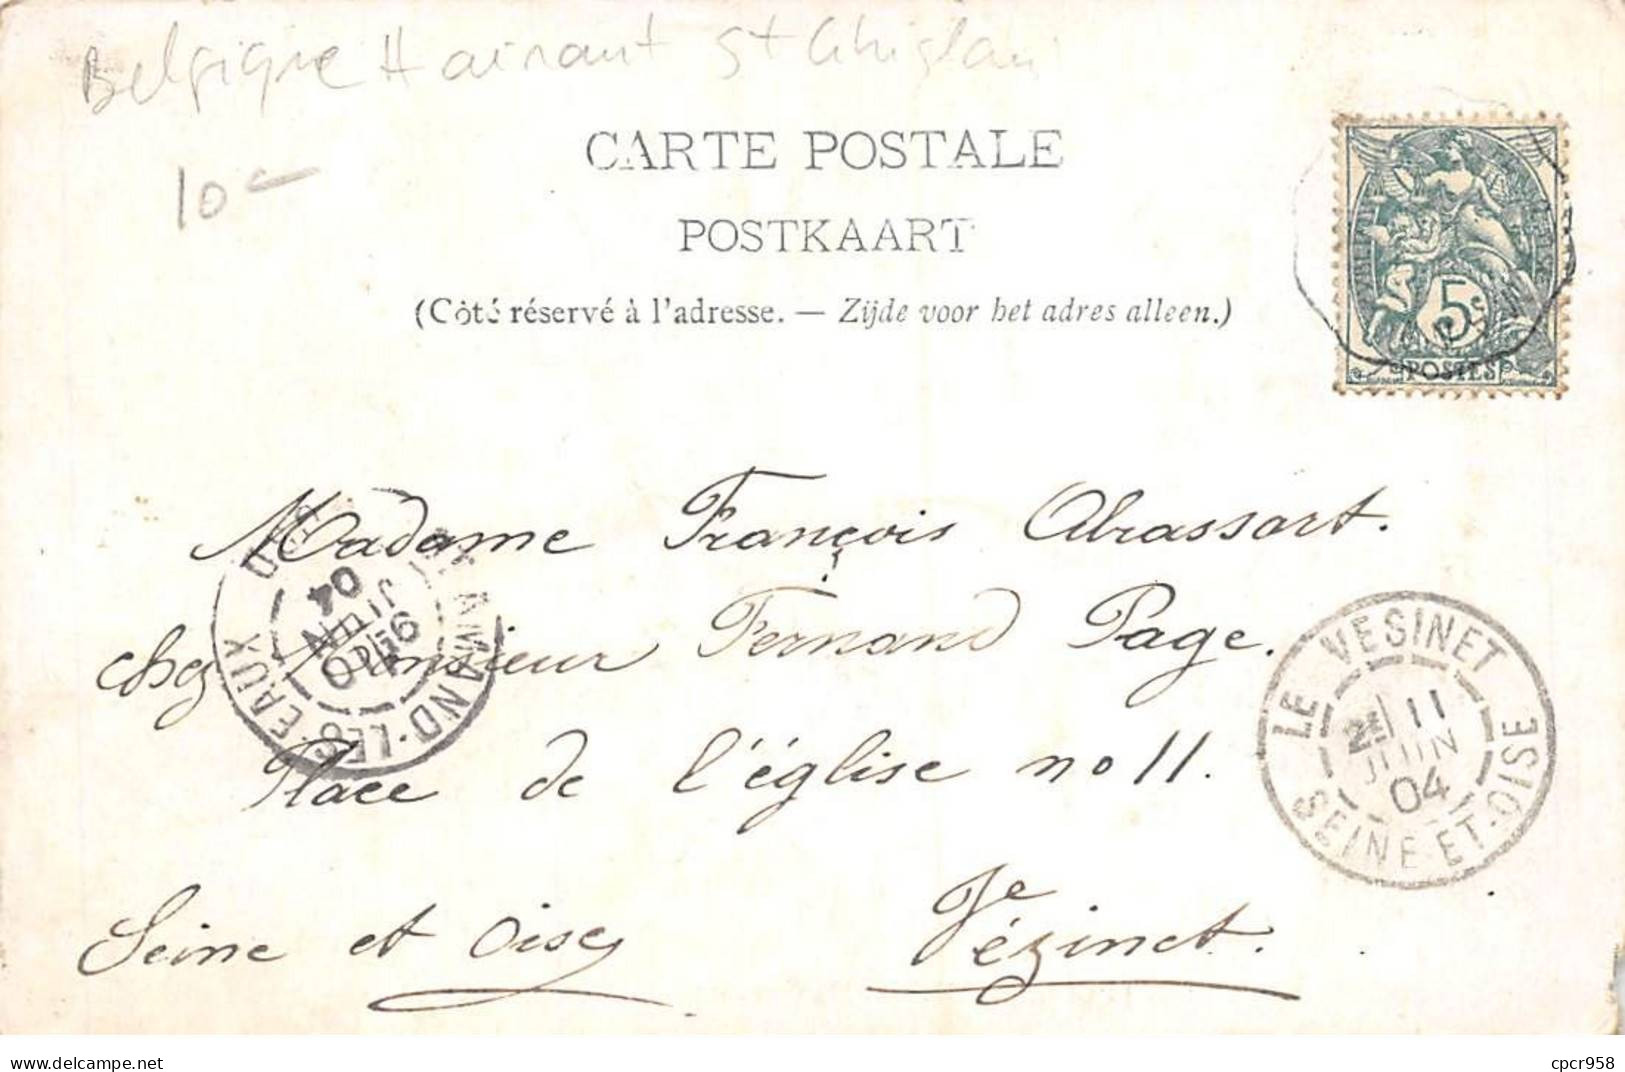 Belgique Hainaut St Ghislain
10
CARTE POSTALE
POSTKAART
(Côté réservé à l'adresse. — Zijde voor het adres alleen.)
5
POSTES
Madame François Abrassart.
chez Monsieur Fernand Page.
Place de l'église no 11.
Seine et Oise
Vézinet.
AMAND-LES-EAUX
NORD
JUIN
04
LE VESINET
11
JUIN
04
SEINE-ET-OISE
delcampe.net
cpcr958